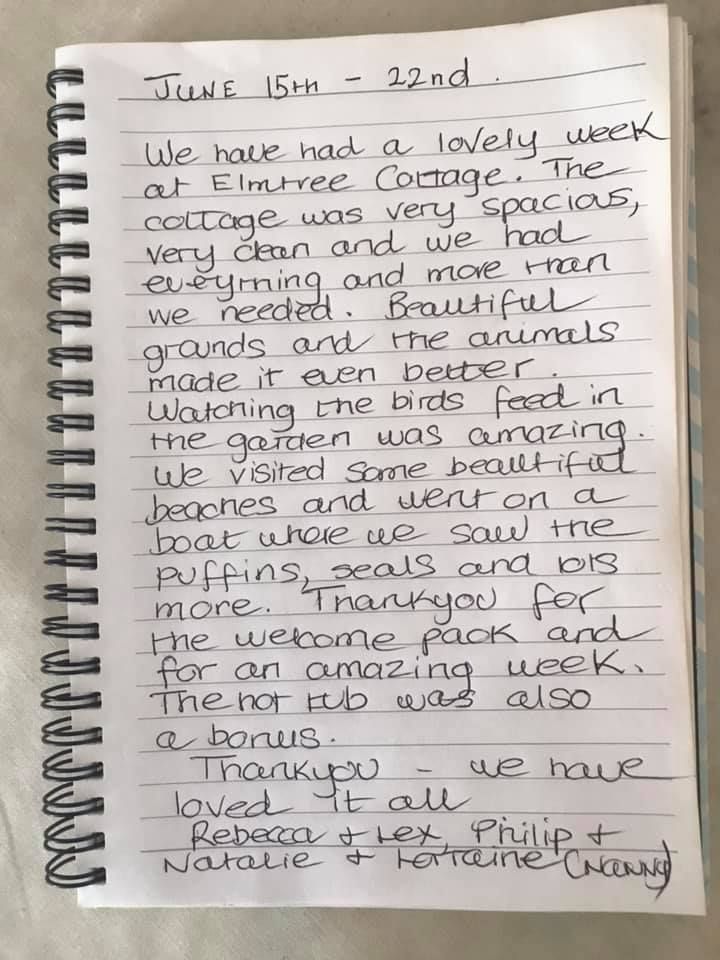 JUNE 15th - 22nd.
We have had a lovely week
at Elmtree Cottage. The
cottage was very spacious,
very clean and we had
eveyrthing and more than
we needed. Beautiful
grounds and the animals
made it even better.
Watching the birds feed in
the garden was amazing.
We visited some beautiful
beaches and went on a
boat where we saw the
puffins, seals and lots
more. Thankyou for
the welcome pack and
for an amazing week.
The hot tub was also
a bonus.
Thankyou - we have
loved it all
Rebecca + Lex, Philip +
Natalie + Lorraine (Nanny)